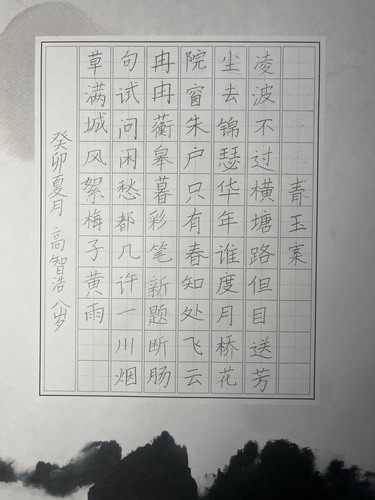 青玉案
凌波不过横塘路但目送芳
尘去锦瑟华年谁度月桥花
院窗朱户只有春知处飞云
冉冉蘅皋暮彩笔新题断肠
句试问闲愁都几许一川烟
草满城风絮梅子黄雨
癸卯夏月 高智浩 八岁